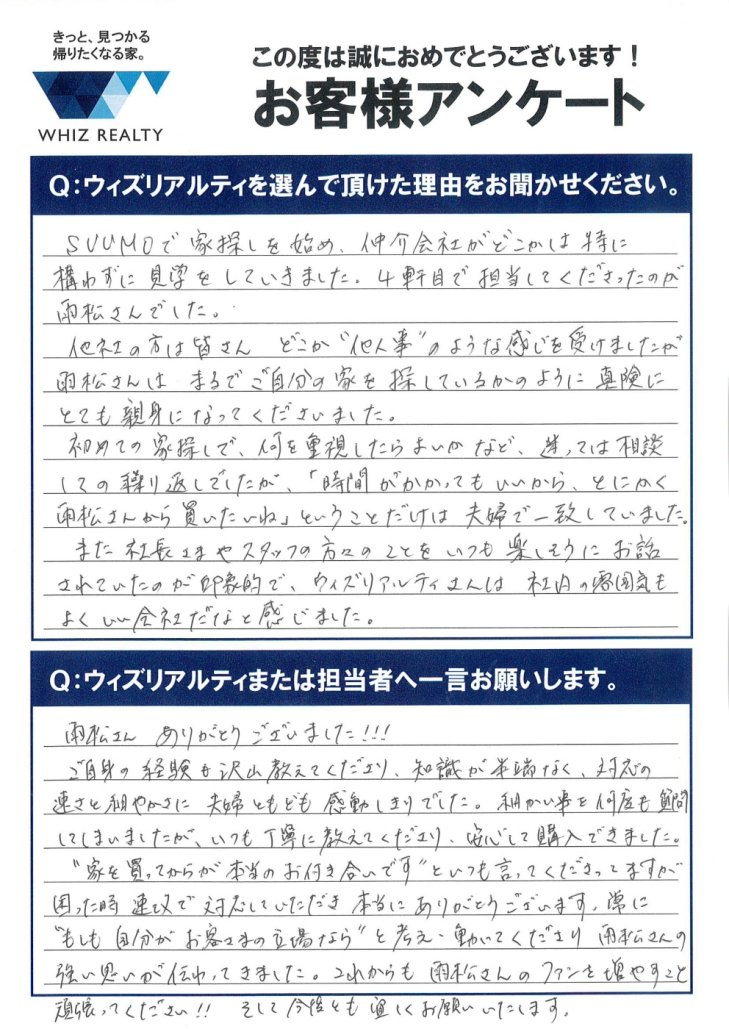 きっと、見つかる
帰りたくなる家。
WHIZ REALTY
この度は誠におめでとうございます！
お客様アンケート
Q：ウィズリアルティを選んで頂けた理由をお聞かせください。
SUUMOで家探しを始め、仲介会社がどこかは特に
構わずに見学をしていきました。4軒目で担当してくださったのが
雨松さんでした。
他社の方は皆さん どこか"他人事"のような感じを受けましたが
雨松さんは まるでご自分の家を探しているかのように真険に
とても親身になってくださいました。
初めての家探しで、何を重視したらよいかなど、迷っては相談
しての繰り返しでしたが、「時間がかかってもいいから、とにかく
雨松さんから買いたいね」ということだけは夫婦で一致していました。
また社長さまやスタッフの方々のことをいつも楽しそうにお話
されていたのが印象的で、ウィズリアルティさんは社内の雰囲気も
よくいい会社だなと感じました。
Q：ウィズリアルティまたは担当者へ一言お願いします。
雨松さん ありがとうございました!!!
ご自身の経験も沢山教えてくださり、知識が半端なく、対応の
速さと細やかさに夫婦ともども感動しきりでした。細かい事を何度も質問
してしまいましたが、いつも丁寧に教えてくださり、安心して購入できました。
"家を買ってからが本当のお付き合いです"といつも言ってくださってますが
困った時 速攻で対応していただき本当にありがとうございます。常に
"もしも自分がお客さまの立場なら"と考え・動いてくださり雨松さんの
強い思いが伝わってきました。これからも雨松さんのファンを増やすこと
頑張ってください!! そして今後とも宜しくお願いいたします。